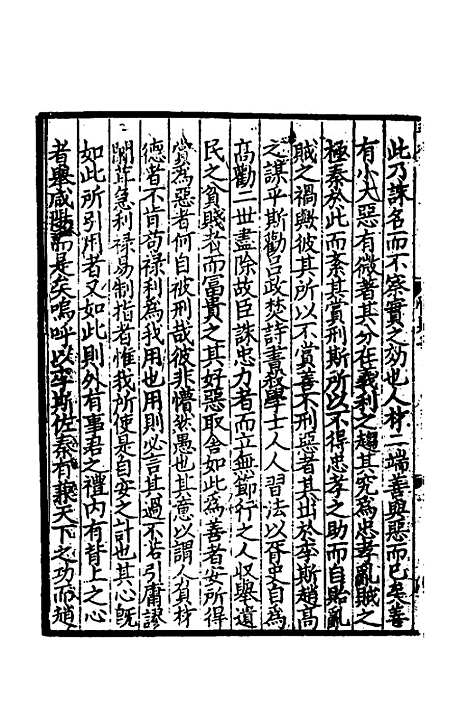 此乃誅名而不察實之効也人材二端善與惡而已矣善
有小大惡有微著其分在義利之趨其究為忠孝亂賊之
極秦於此而紊其賞刑斯所以不得忠孝之助而自貽亂
賊之禍與彼其所以不賞善不刑惡者其出於李斯趙高
之謀乎斯勸呂政焚詩書殺學士人人習法以吏自為
高勸二世盡除故臣誅忠力者而立無節行之人收舉遺
民之貧賤者而富貴之其好惡取舍如此為善者安所得
賞為惡者何自被刑哉彼非懵然愚也其意以謂人負材
德者不肯苟祿利為我用也用則必言其過不若引庸謬
闒茸急利祿易制指者惟我所使是自安之計也其心既
如此所引用者又如此則外有事君之禮內有背上之心
者舉咸 而是矣嗚呼以李斯佐秦有兼天下之功而趙